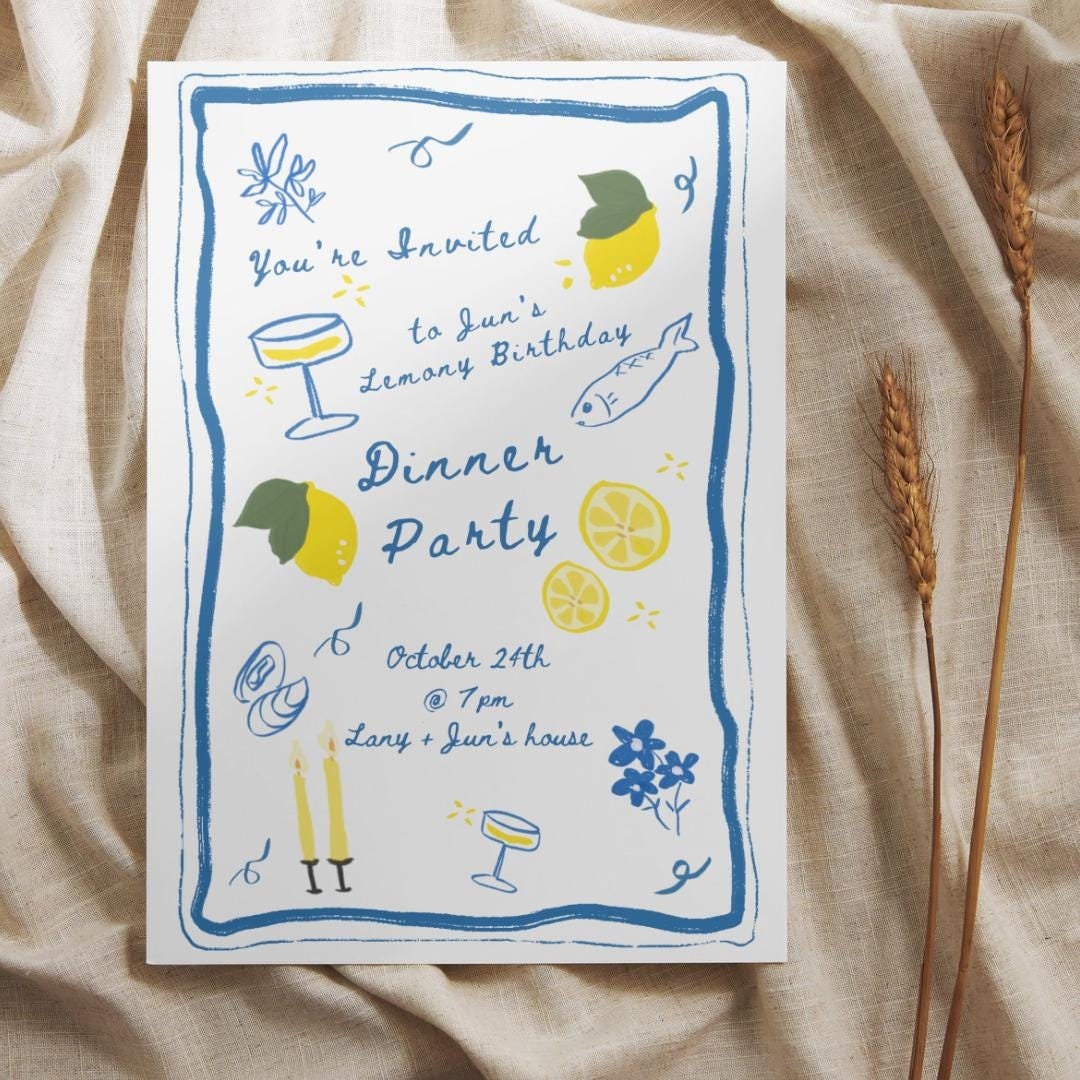 You're Invited
to Jun's
Lemony Birthday
Dinner
Party
October 24th
@ 7pm
Lany + Jun's house